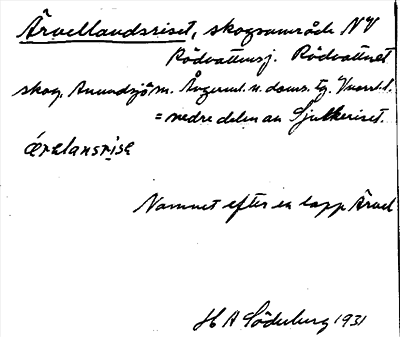 Ärvellandsriset, skogsområde NV
Rödvattensj. Rödvattnet
skog. Anundsjö sn. Ångerml. n. doms. tg. Vnorrl. l.
= nedre delen av Sjulkeriset.
ærelansrise
Namnet efter en lapp Ärvel
H A Söderberg 1931